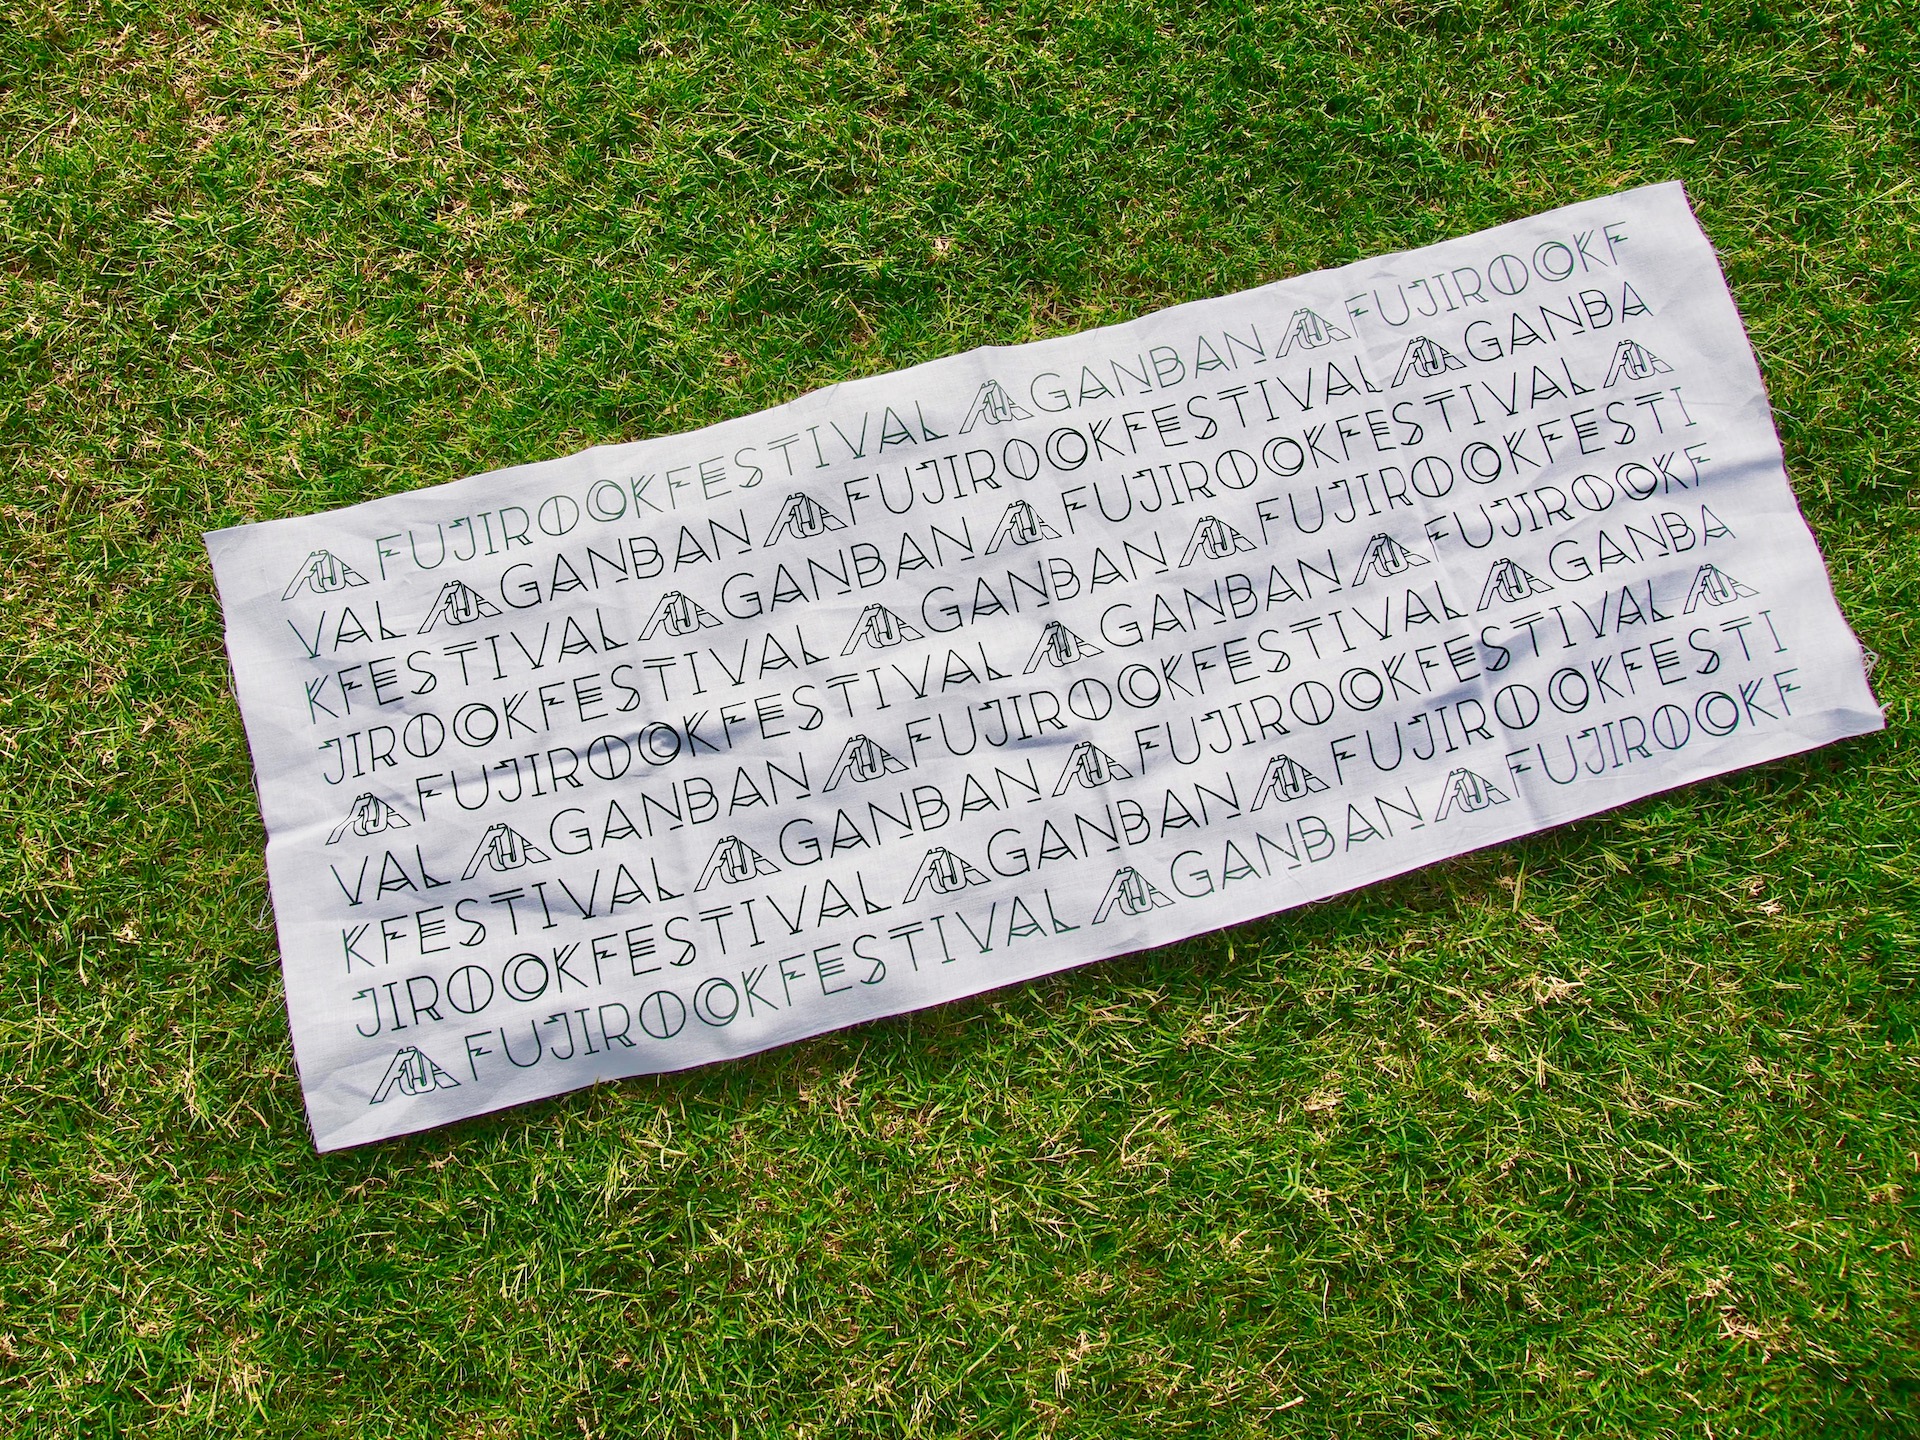 FUJIROCKFESTIVAL GANBAN FUJIROCKF
VAL GANBAN FUJIROCKFESTIVAL GANBA
KFESTIVAL GANBAN FUJIROCKFESTIVAL
JIROCKFESTIVAL GANBAN FUJIROCKFESTI
FUJIROCKFESTIVAL GANBAN FUJIROCKF
VAL GANBAN FUJIROCKFESTIVAL GANBA
KFESTIVAL GANBAN FUJIROCKFESTIVAL
JIROCKFESTIVAL GANBAN FUJIROCKFESTI
FUJIROCKFESTIVAL GANBAN FUJIROCKF